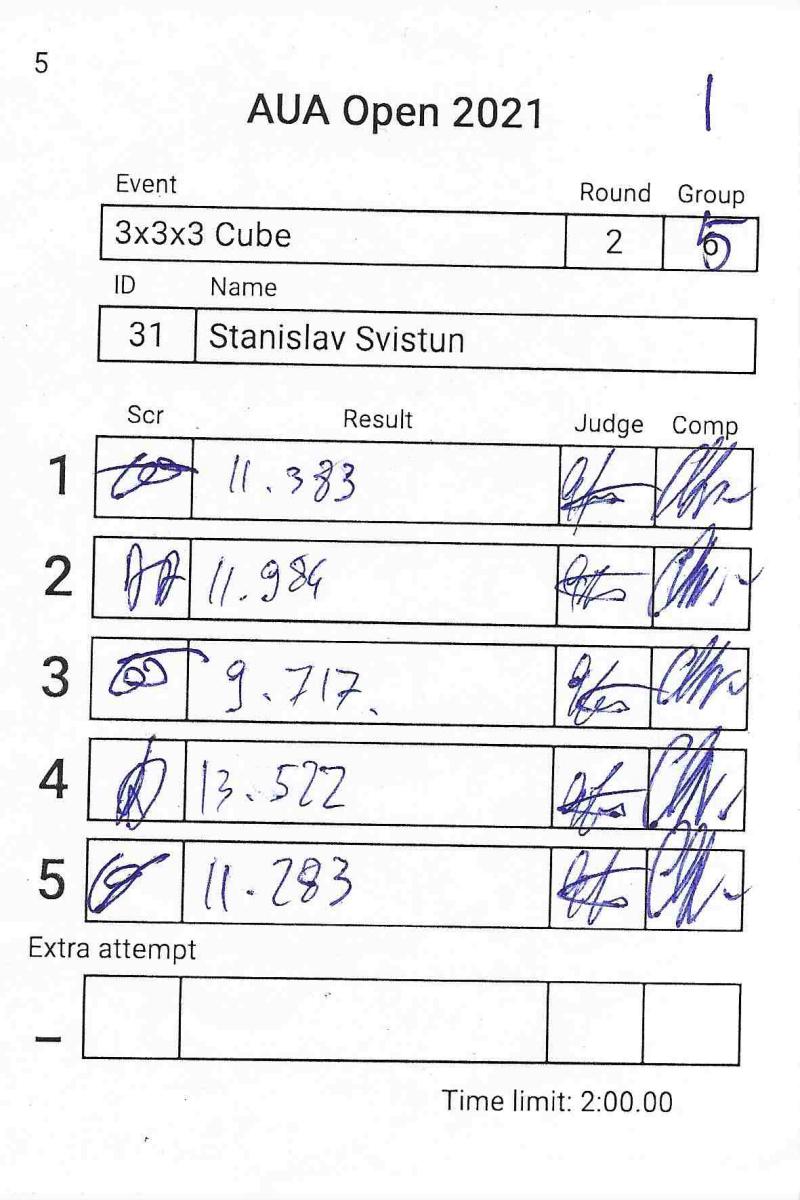 5
AUA Open 2021
1
Event Round Group
3x3x3 Cube 2 5
ID Name
31 Stanislav Svistun
Scr Result Judge Comp
1 11.383
2 11.984
3 9.717.
4 13.522
5 11.283
Extra attempt
_
Time limit: 2:00.00